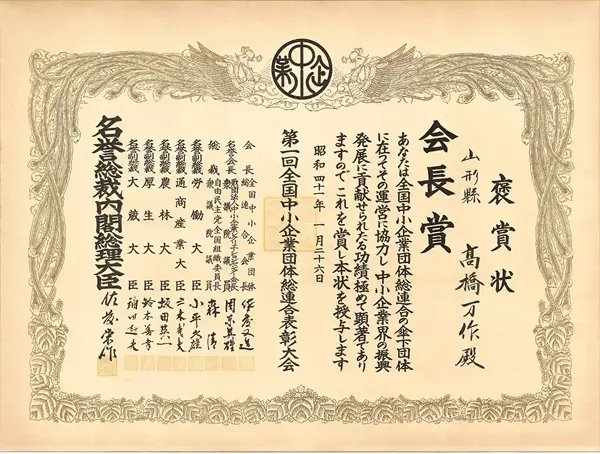 中企業
褒賞状
山形縣 高橋万作殿
会長賞
あなたは全国中小企業団体総連合の傘下団体
に在つてその運営に協力し中小企業界の振興
発展に貢献せられたる功績極めて顕著であり
ますのでこれを賞し本状を授与します
昭和四十一年一月二十六日
第一回全国中小企業団体総連合表彰大会
会長 全国中小企業団体総連合会長
名誉会長 衆議院議員
総裁 自由民主党全国組織委員長 衆議院議員 森清
名誉副総裁 労働大臣 小平久雄
名誉副総裁 通商産業大臣 三木武夫
名誉副総裁 農林大臣 坂田英一
名誉副総裁 厚生大臣 鈴木善幸
名誉副総裁 大蔵大臣 福田赳夫
名誉総裁内閣総理大臣 佐藤栄作